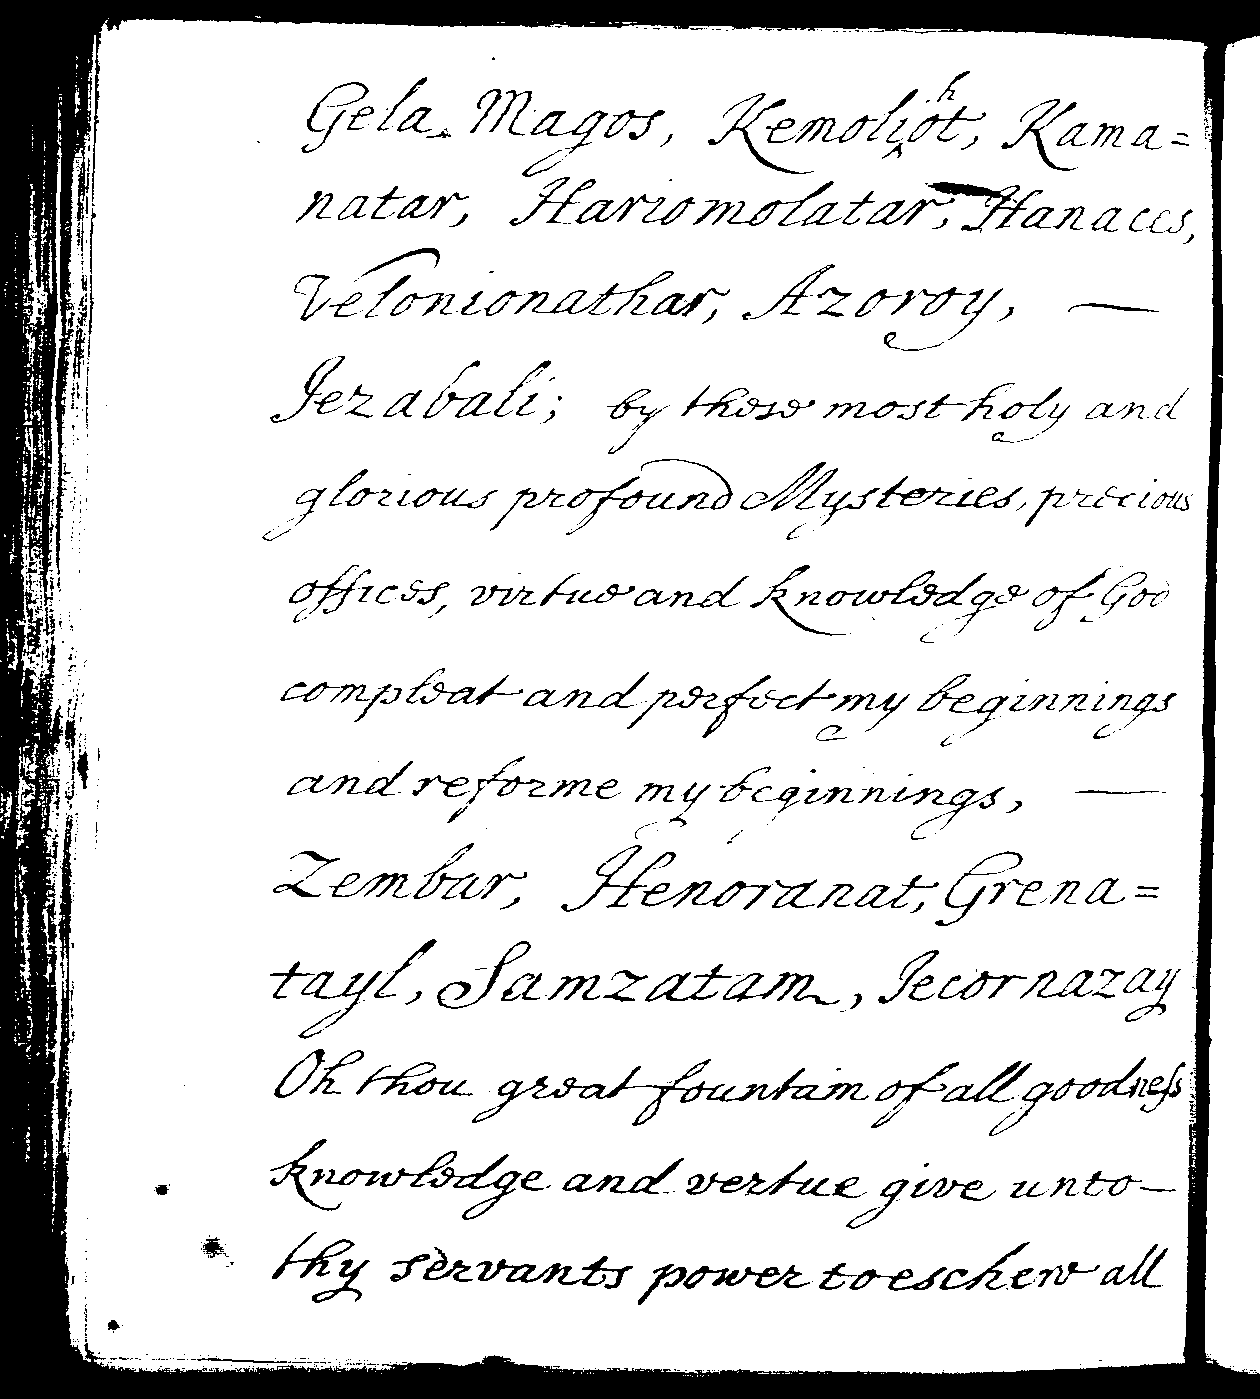 Gela Magos, Kemolihot, Kama=
natar, Hariomolatar, Hanaces,
Velonionathar, Azoroy, —
Jezabali; by these most holy and
glorious profound Mysteries, precious
offices, virtue and knowledge of God
compleat and perfect my beginnings
and reforme my beginnings, —
Zembar, Henoranat, Grena=
tayl, Samzatam, Jecornazay
Oh thou great fountain of all goodness
knowledge and vertue give unto—
thy servants power to eschew all